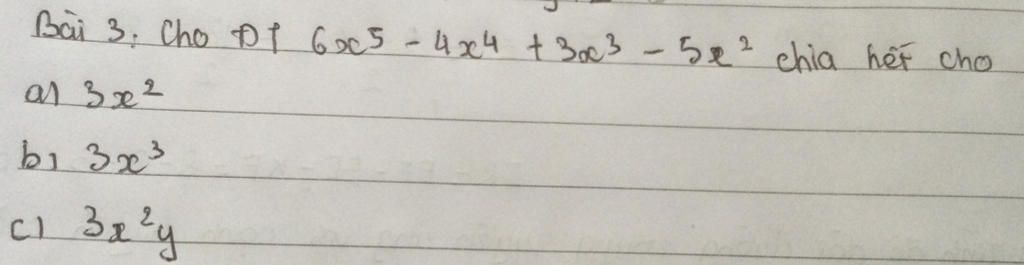 Bài 3: Cho ĐT 6x⁵ - 4x⁴ + 3x³ - 5x² chia hết cho
a) 3x²
b) 3x³
c) 3x²y